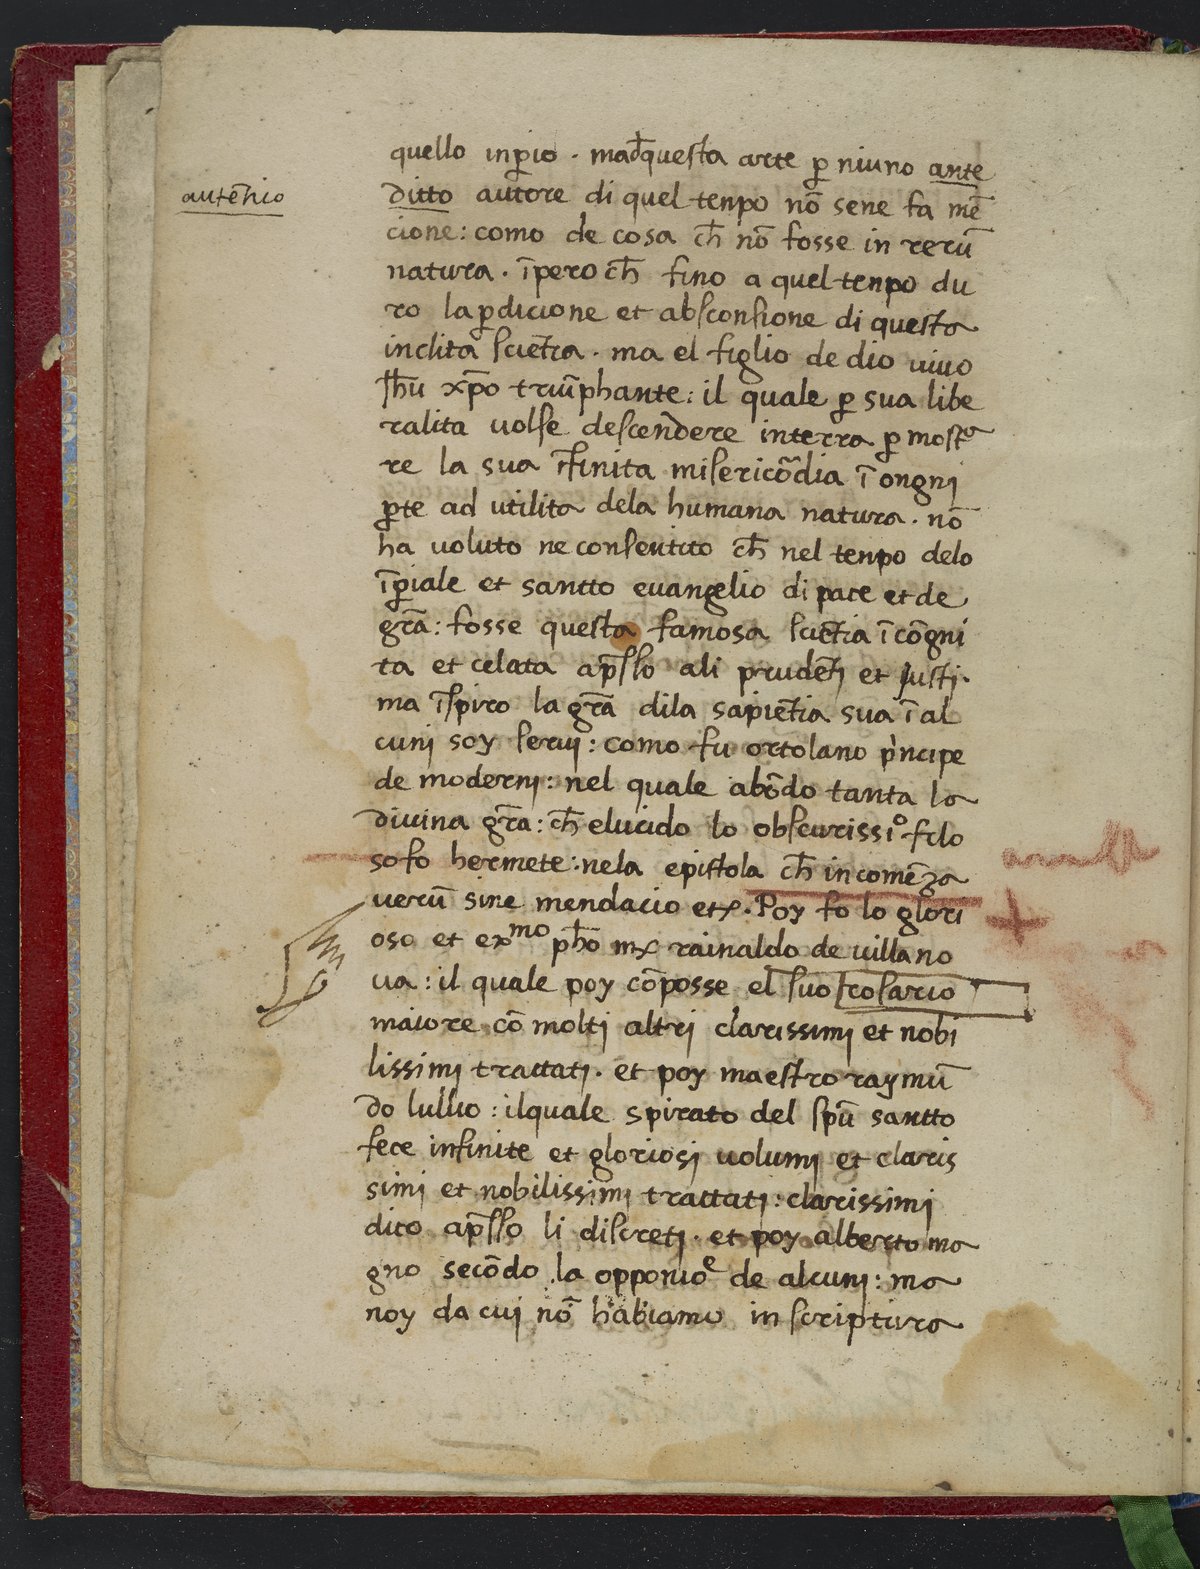 quello inp̱io . mad̄questa arte p̱ niuno ante
autēhio
ditto autore di quel tenpo nō sene fa mē
cione: como de cosa ch̄ nō fosse in rerū
natura . īperoch̄ fino a quel tenpo du
ro la p̱dicione et absconsione di questa
inclita sciētia . ma el figlio de dio vivo
Jh̄u xp̄o triūphante: il quale p̱ sua libe
ralita volse descendere interra p̱ mostᵃ
re la sua īfinita misericōdia ī ongni
p̱te ad utilita dela humana natura . nō
ha voluto ne consentito ch̄ nel tenpo delo
īp̱iale et santto evangelio di pace et de
grā: fosse questa famosa sciētia īcōgni
ta et celata ap̄sso ali prudētj et justj.
ma īspiro la grā dila sapiētia sua ī al
cunj soy servj: como fu ortolano p̍ncipe
de modernj: nel quale abōdo tanta la
divina grā: ch̄ elucido lo obscurissi͏ᵒ filo
sofo hermete: nela epistola ch̄ incomēza
verū sine mendacio etꝝ. Poy fo lo glori
oso et exᵐᵒ ph̄o mꝝ rainaldo de villano
va: il quale poy cōposse el suo rosario
maiore cō moltj altri clarissimj et nobi
lissimj trattatj. et poy maestro raymū
do lullio: ilquale spirato del spū santto
fece infinite et gloriosj volumj et claris
simj et nobilissimj trattatj: clarissimj
dico ap̄sso li discretj. et poy alberto ma
gno secōdo la opponioᵉ de alcunj: ma
noy da cuj nō habiamo in scriptura